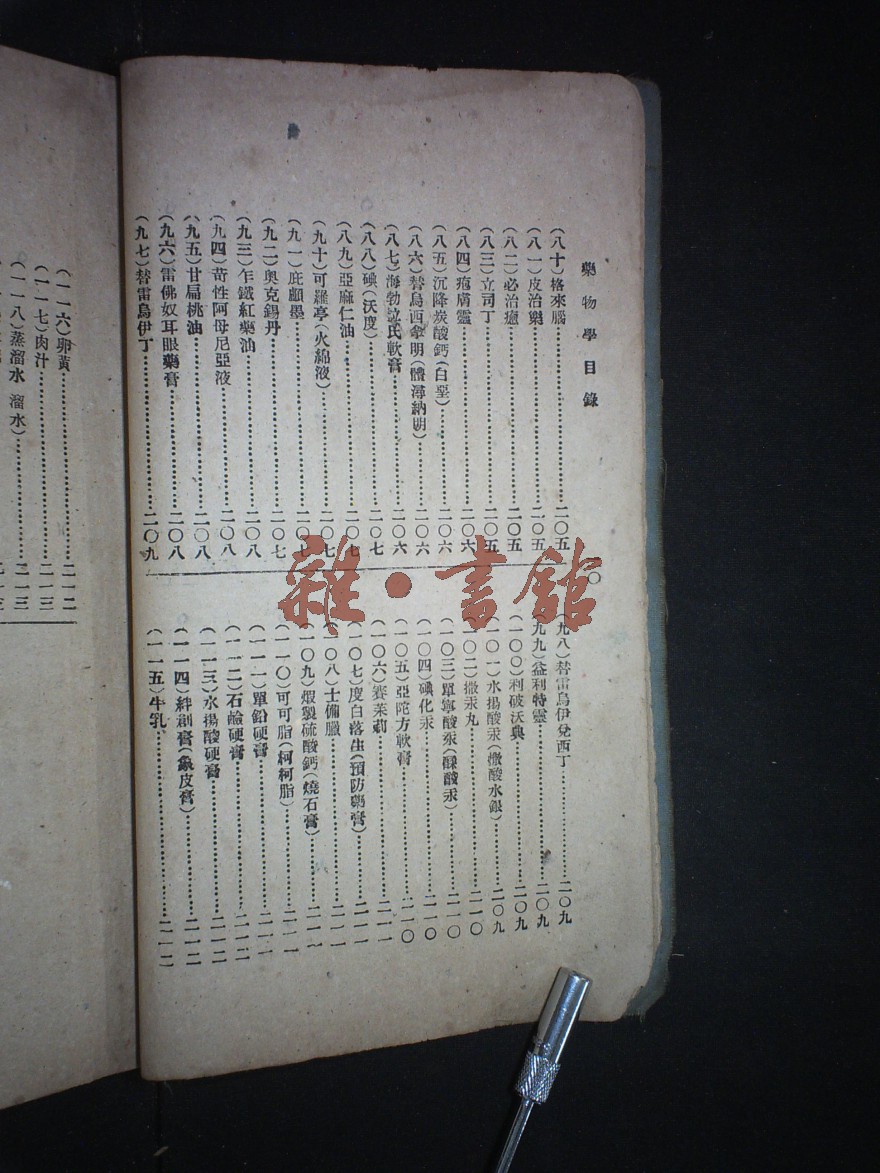 藥物學目錄
(八十)格來腦……二〇五
(八一)皮治樂……二〇五
(八二)必治瘡……二〇五
(八三)立司丁……二〇五
(八四)瘡膚靈……二〇六
(八五)沉降炭酸鈣(白堊)……二〇六
(八六)替烏西拿明(體淂納明)……二〇六
(八七)海勃拉氏軟膏……二〇六
(八八)碘(沃度)……二〇七
(八九)亞麻仁油……二〇七
(九十)可羅亭(火綿液)……二〇七
(九一)庇顱墨……二〇七
(九二)奧克錫丹……二〇七
(九三)乍鐵紅藥油……二〇八
(九四)苛性阿母尼亞液……二〇八
(九五)甘扁桃油……二〇八
(九六)雷佛奴耳眼藥膏……二〇八
(九七)替雷烏伊丁……二〇九
(九八)替雷烏伊兌西丁……二〇九
(九九)益利特靈……二〇九
(一〇〇)利破沃典……二〇九
(一〇一)水揚酸汞(撒酸水銀)……二〇九
(一〇二)撒汞丸……二一〇
(一〇三)單寧酸汞(鞣酸汞)……二一〇
(一〇四)碘化汞……二一〇
(一〇五)亞陀方軟膏……二一〇
(一〇六)賽茉莉……二一一
(一〇七)度白落生(預防藥膏)……二一一
(一〇八)士備臘……二一一
(一〇九)煆製硫酸鈣(燒石膏)……二一一
(一一〇)可可脂(柯柯脂)……二一一
(一一一)單鉛硬膏……二一一
(一一二)石鹼硬膏……二一二
(一一三)水揚酸硬膏……二一二
(一一四)絆創膏(象皮膏)……二一二
(一一五)牛乳……二一二
(一一六)卵黃……二一二
(一一七)肉汁……二一三
(一一八)蒸溜水 溜水)……二一三
雜·書館